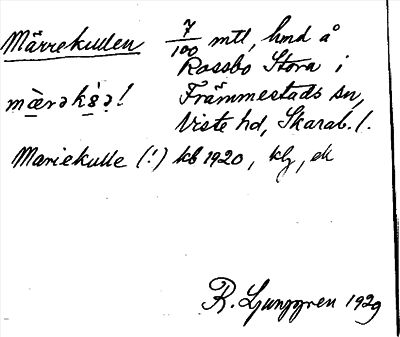 Märrekullen 7/100 mtl, hmd å
Rossbo Stora i
Främmestads sn,
Viste hd, Skarab. l.
Mariekulle (!) kb 1920,
R. Ljunggren 1929